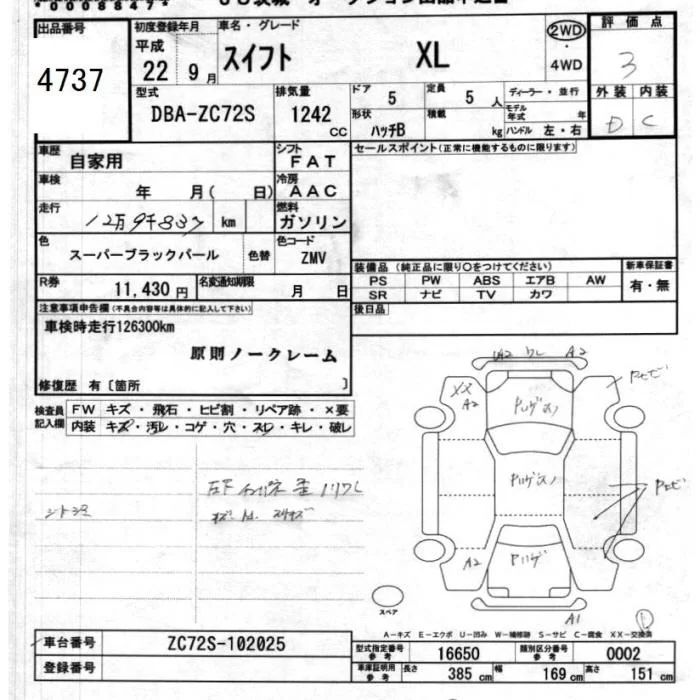 *00088474*
出品番号
4737
初度登録年月
平成
22 9月
車名・グレード
スイフト XL
2WD
・
4WD
評価点
3
型式
DBA-ZC72S
排気量
1242
CC
ドア
5
定員
5 人
ディーラー・並行
モデル
年式 年
形状
ハッチB
積載
kg
ハンドル 左・右
外装 内装
D C
車歴
自家用
シフト
FAT
セールスポイント(正常に機能するものに限ります)
車検
年 月( 日)
冷房
AAC
走行
12万9千837 km
燃料
ガソリン
色
スーパーブラックパール
色替
色コード
ZMV
装備品 (純正品に限り○をつけてください)
新車保証書
PS PW ABS エアB AW
有・無
SR ナビ TV カワ
R券
11,430 円
名変通知期限
月 日
後日品
注意事項申告欄(不具合内容等は具体的に記入して下さい)
車検時走行126300km
原則ノークレーム
修復歴 有〔箇所 〕
検査員
記入欄
FW キズ・飛石・ヒビ割・リペア跡・×要
内装 キズ・汚レ・コゲ・穴・スレ・キレ・破レ
A2 ワレ A2
XX
A2
A2
A1
スペア
A-キズ E-エクボ U-凹み W-補修跡 S-サビ C-腐食 XX-交換済
車台番号
ZC72S-102025
登録番号
型式指定番号
参考
16650
類別区分番号
参考
0002
車庫証明用
参考
長さ 385 cm 幅 169 cm 高さ 151 cm